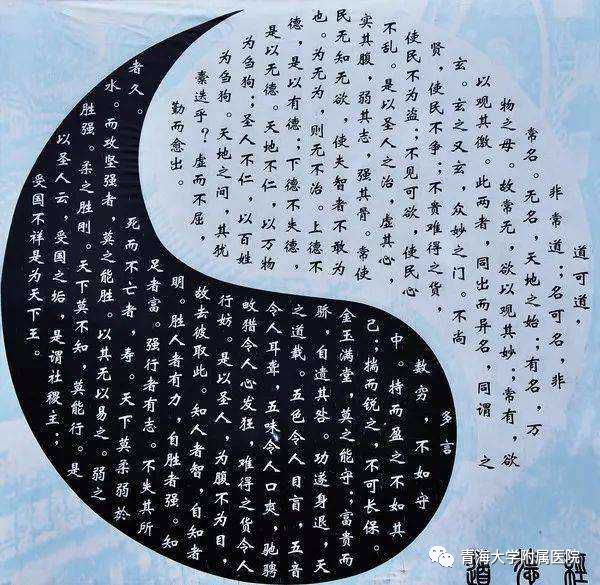 道可道,
非常道;名可名,非
常名。无名,天地之始;有名,万
物之母。故常无,欲以观其妙;常有,欲
以观其徼。此两者,同出而异名,同谓 之
玄。玄之又玄,众妙之门。不尚
贤,使民不争;不贵难得之货,
使民不为盗;不见可欲,使民心
不乱。是以圣人之治,虚其心,
实其腹,弱其志,强其骨。常使
民无知无欲,使夫智者不敢为
也。为无为,则无不治。上德不
德,是以有德;下德不失德,
是以无德。天地不仁,以万物
为刍狗;圣人不仁,以百姓
为刍狗。天地之间,其犹
橐迭乎?虚而不屈,
勤而愈出。
多言
数穷,不如守
中。持而盈之不如其
己;揣而锐之,不可长保。
金玉满堂,莫之能守;富贵而
骄,自遗其咎。功遂身退,天
之道载。五色令人目盲,五音
令人耳聋,五味令人口爽,驰骋
畋猎令人心发狂,难得之货令人
行妨。是以圣人,为腹不为目,
故去彼取此。知人者智,自知者
明。胜人者有力,自胜者强。知
足者富。强行者有志。不失其所
者久。
死而不亡者,寿。天下莫柔弱於
水。而攻坚强者,莫之能胜。以其无以易之。弱之
胜强。柔之胜刚。天下莫不知 莫能行。是
以圣人云,受国之垢,是谓社稷主;
受国不祥是为天下王。
青海大学附属医院